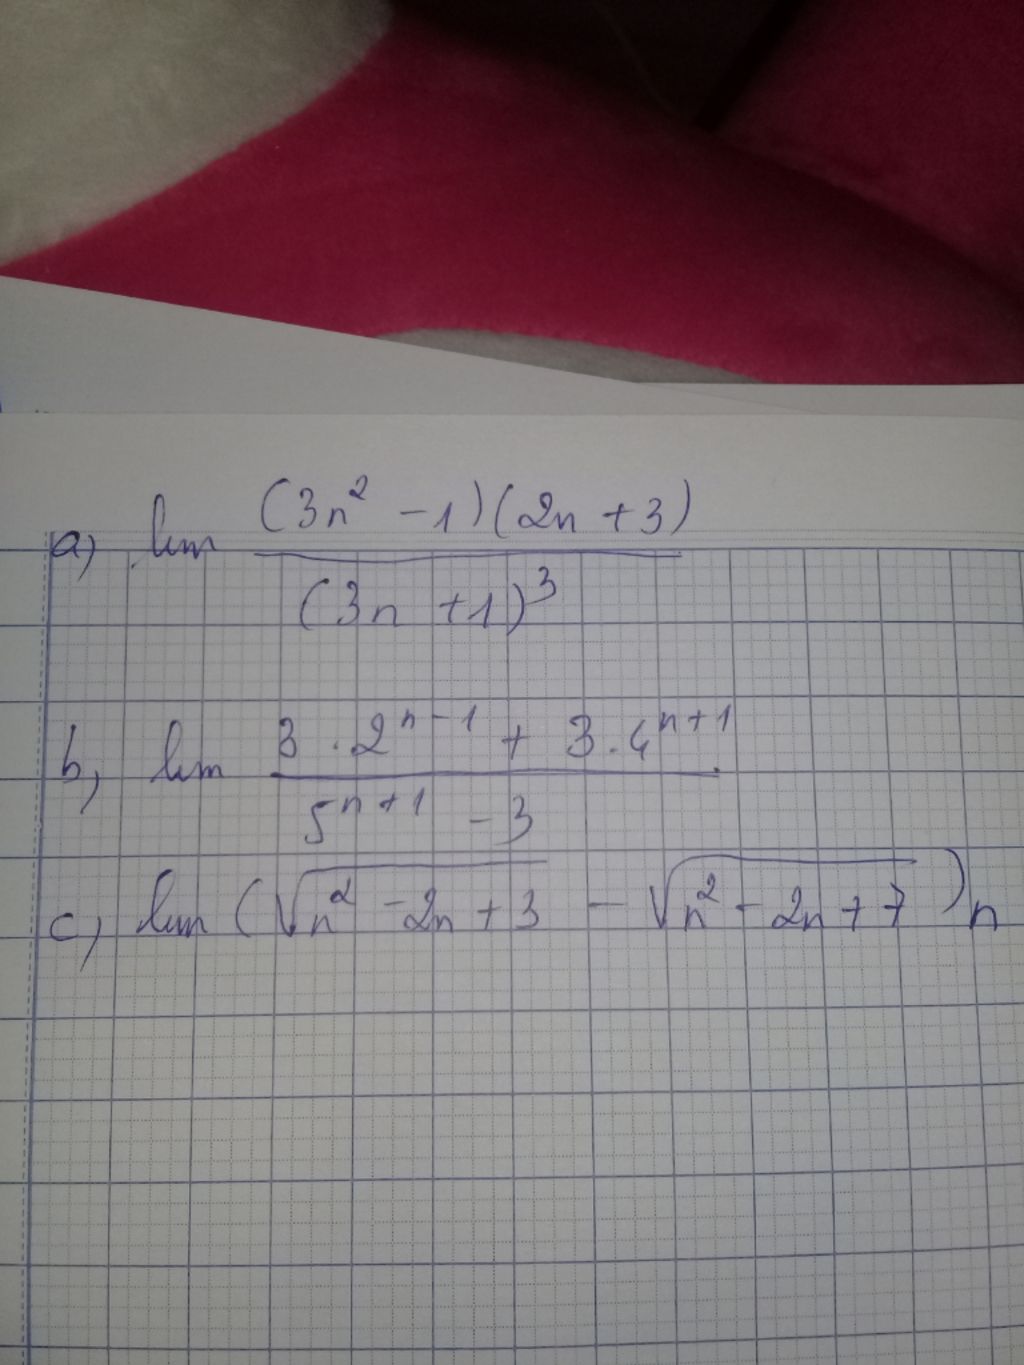 a) lim (3n² - 1)(2n + 3) / (3n + 1)³
b, lim 3 . 2ⁿ⁻¹ + 3 . 4ⁿ⁺¹ / 5ⁿ⁺¹ - 3
c, lim (√(n² - 2n + 3) - √(n² - 2n + 7)) n